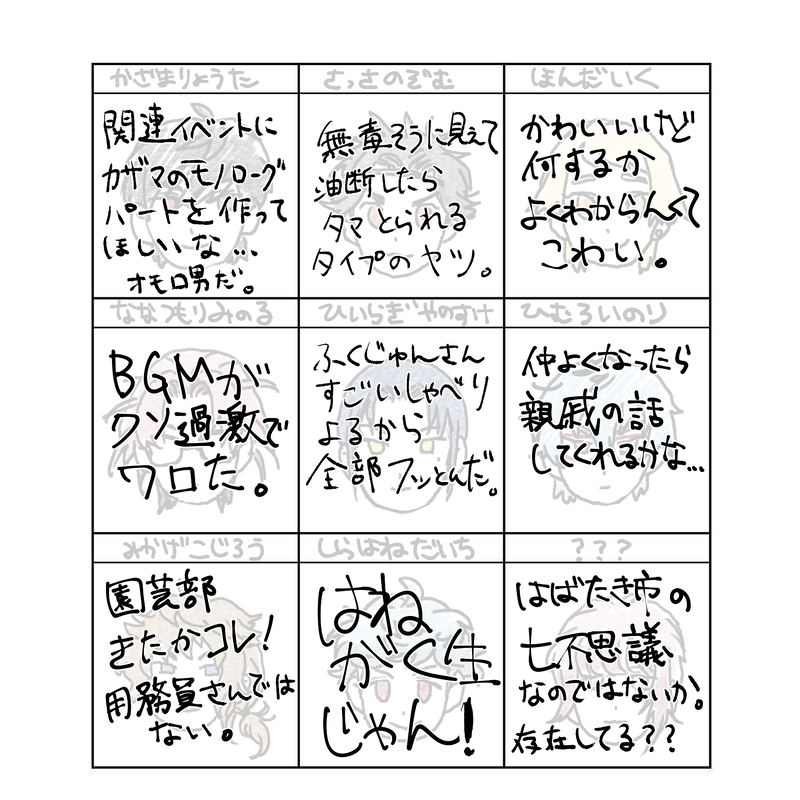 かざまりょうた
関連イベントに
カザマのモノローグ
パートを作って
ほしいな…
オモロ男だ。
さっさのぞむ
無毒そうに見えて
油断したら
タマとられる
タイプのヤツ。
ほんだいく
かわいいけど
何するか
よくわからんくて
こわい。
ななつもりみのる
BGMが
クソ過激で
ワロた。
ひいらぎやのすけ
ふくじゅんさん
すごいしゃべり
よるから
全部フッとんだ。
ひむろいのり
仲よくなったら
親戚の話
してくれるかな…
みかげこじろう
園芸部
きたかコレ!
用務員さんでは
ない。
しらはねだいち
はね
がく生
じゃん!
???
はばたき市の
七不思議
なのではないか。
存在してる??